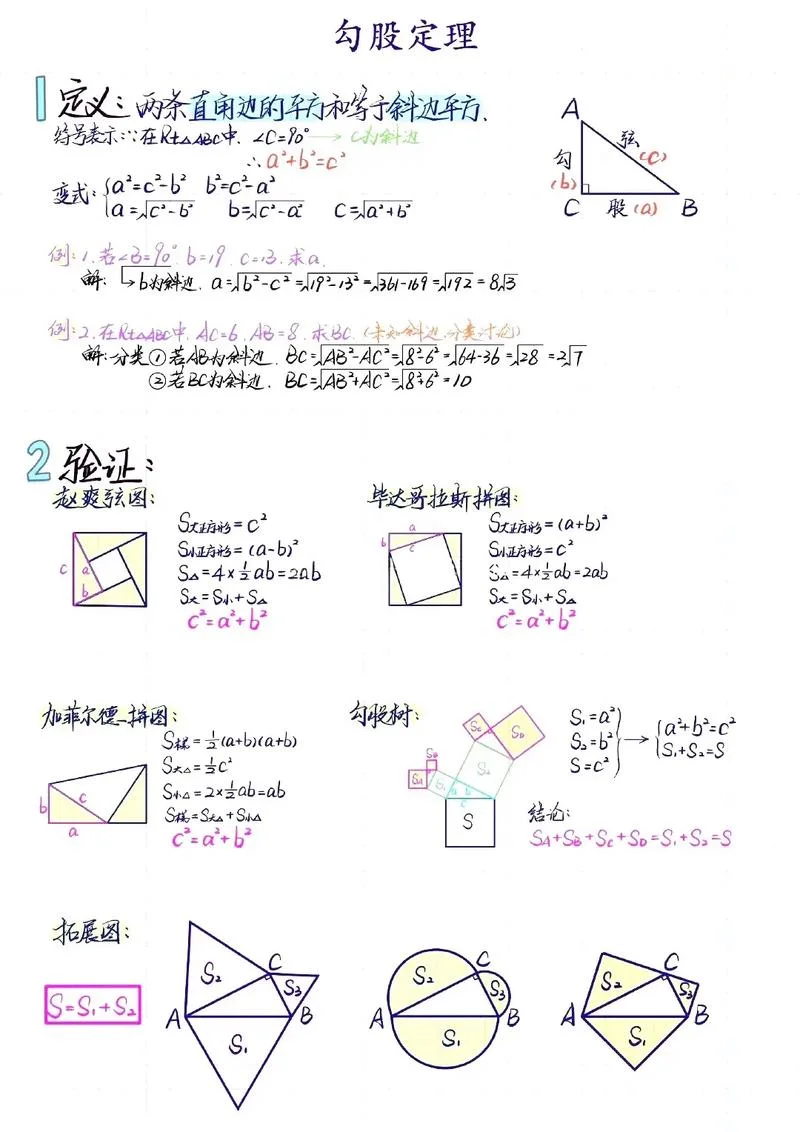 勾股定理
1 定义:两条直角边的平方和等于斜边平方.
符号表示:∵在Rt△ABC中,∠C=90°→c为斜边
∴a²+b²=c²
变式:{a²=c²-b² b²=c²-a²
a=√c²-b² b=√c²-a² c=√a²+b²
A
弦
(c)
勾
(b)
C 股(a) B
例:1.若∠B=90°,b=19,c=13,求a.
解:→b为斜边,a=√b²-c²=√19²-13²=√361-169=√192=8√3
例:2.在Rt△ABC中,AC=6,AB=8,求BC.(未知斜边,分类讨论)
解:分类①若AB为斜边,BC=√AB²-AC²=√8²-6²=√64-36=√28=2√7
②若BC为斜边,BC=√AB²+AC²=√8²+6²=10
2 验证:
赵爽弦图:
c a b
S大正方形=c²
S小正方形=(a-b)²
S△=4×½ab=2ab
S大=S小+S△
c²=a²+b²
毕达哥拉斯拼图:
a b c
S大正方形=(a+b)²
S小正方形=c²
S△=4×½ab=2ab
S大=S小+S△
c²=a²+b²
加菲尔德拼图:
b c a
S梯=½(a+b)(a+b)
S大△=½c²
S小△=2×½ab=ab
S梯=S大△+S小△
c²=a²+b²
勾股树:
SC SD
SB S2
SA S1 a b
c
S
S₁=a²
S₂=b²
S=c²
→{a²+b²=c²
S₁+S₂=S
结论:
SA+SB+SC+SD=S₁+S₂=S
拓展图:
S=S₁+S₂
S₂ C S₃ A B S₁
S₂ C S₃ A B S₁
S₂ C S₃ A B S₁